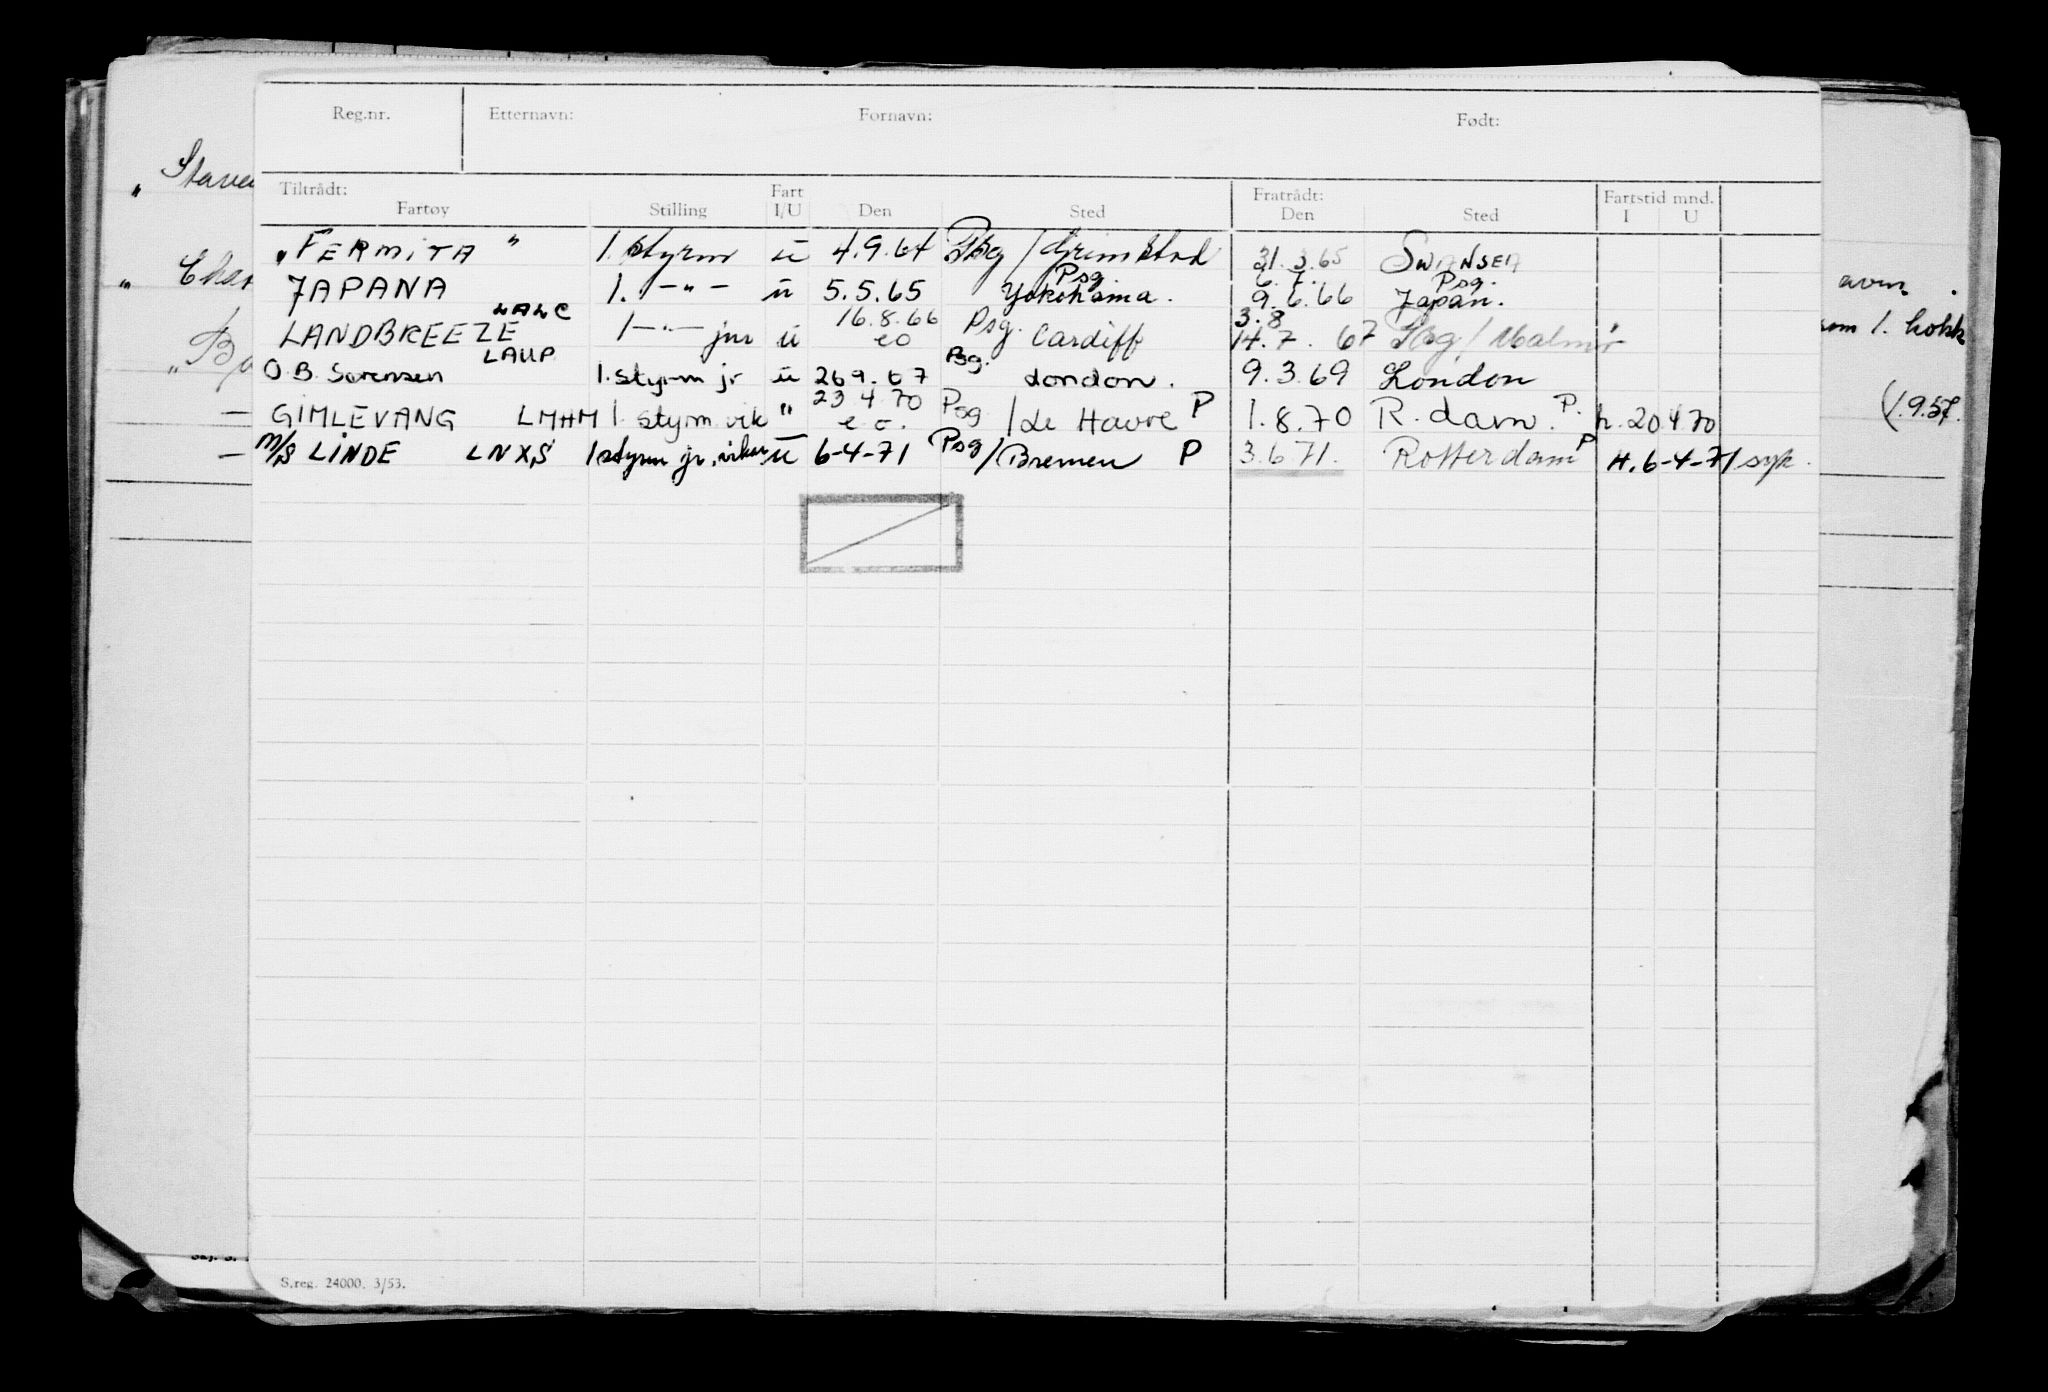 Reg.nr. Etternavn: Fornavn: Født:
Tiltrådt: Fart Fratrådt: Fartstid mnd.
Fartøy Stilling I/U Den Sted Den Sted I U
"FERMITA" 1. styrm u 4.9.64 / Grimstad 31.3.65 SWANSEA
Psg 6.7. Psg.
JAPANA 1. -"- u 5.5.65 Yokohama. 9.6.66 Japan.
LALC 16.8.66 Psg. 3.8
LANDBREEZE 1 -"- jnr u eo Cardiff 14.7. 67 / Malmö
LAUP Psg.
O.B. Sørensen 1. styrm jr u 26 9. 67 London. 9.3.69 London
23 4 70
— GIMLEVANG LMHM 1. styrm vik " e.o. Psg / Le Havre P 1.8.70 R.dam. P. h. 20 4 70
— M/S LINDE LNXS 1 styrm jr. u 6-4-71 Psg / Bremen P 3.6 71. Rotterdam P H. 6-4-71 syk.
S.reg. 24000. 3/53.
" Stava
" Char
avn.
som 1. kokk
(1.9.57.